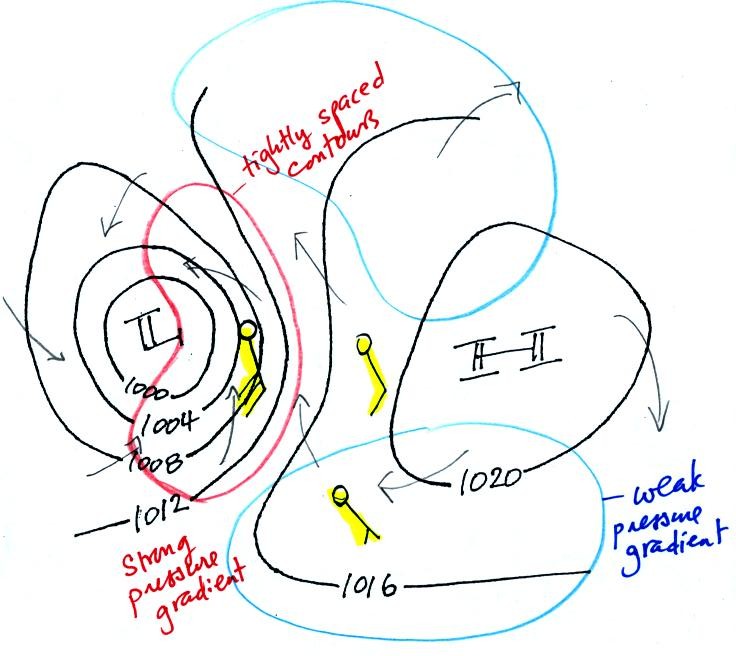 tightly spaced
contours
L
H
1000
1004
1008
1012
1020
1016
Strong
pressure
gradient
weak
pressure
gradient